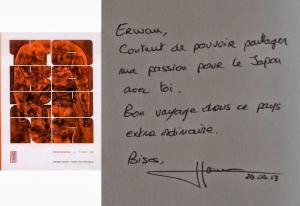 Erwan,
Content de pouvoir partager
ma passion pour le Japon
avec toi.
Bon voyage dans ce pays
extra ordinaire.
Bises,
29.03.13